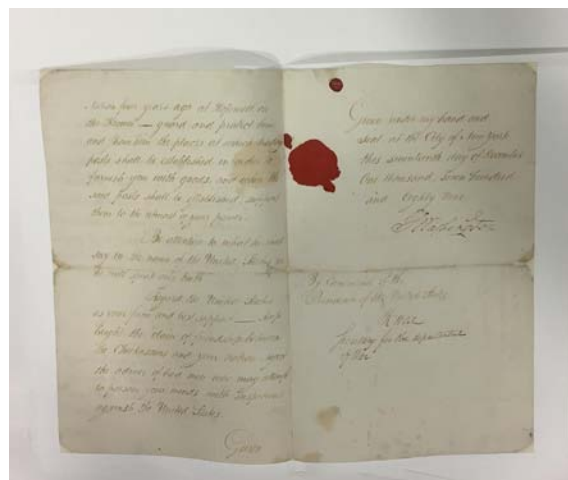 Nation four years ago at Hopewell on
the Keowee — guard and protect them
and them from the places at which trading
posts shall be established in order to
furnish you with goods, and when the
said posts shall be established, support
them to the utmost of your power.
Be attentive to what he shall
say in the name of the United States, for
he will speak only truth
Regard the United States
as your firm and best support — Keep
bright the chain of friendship between
the Chickasaws and your nation, reject
the advice of bad men who may attempt
to poison your minds with suspicions
against the United States.
Given
Given under my hand and
seal at the City of New York
this seventeenth day of December
One thousand, Seven hundred
and eighty nine.
G Washington
By Command of the
President of the United States
H Knox
Secretary for the department
of War